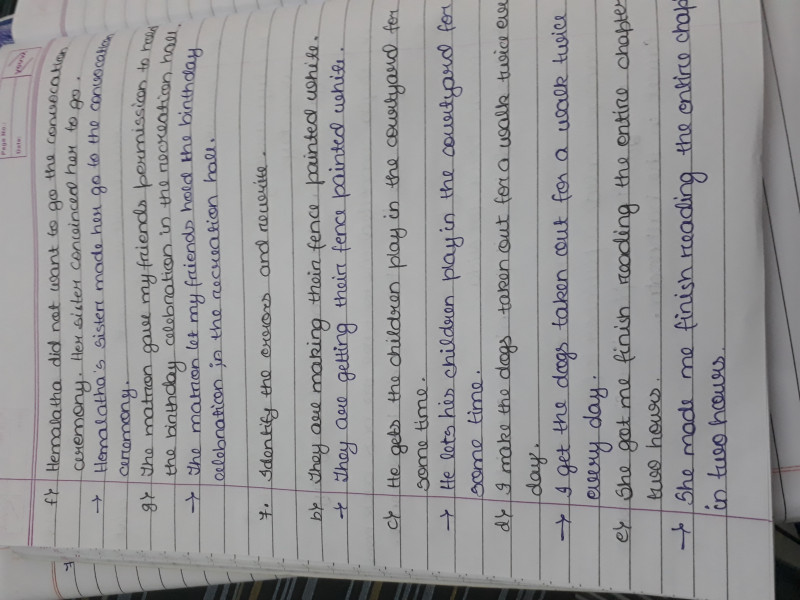 Page No:
Date:
YOUVA
f) Hemalatha did not want to go the convocation
ceremony. Her sister convinced her to go.
→ Hemalatha's sister made her go to the convocation
ceremony.
g) The matron gave my friends permission to hold
the birthday celebration in the recreation hall.
→ The matron let my friends hold the birthday
celebration in the recreation hall.
7. Identify the errors and rewrite.
b) They are making their fence painted white.
→ They are getting their fence painted white.
c) He gets the children play in the courtyard for
some time.
→ He lets his children play in the courtyard for
some time.
d) I make the dogs taken out for a walk twice eve
day.
→ I get the dogs taken out for a walk twice
every day.
e) She got me finish reading the entire chapter
two hours.
→ She made me finish reading the entire chap
in two hours.